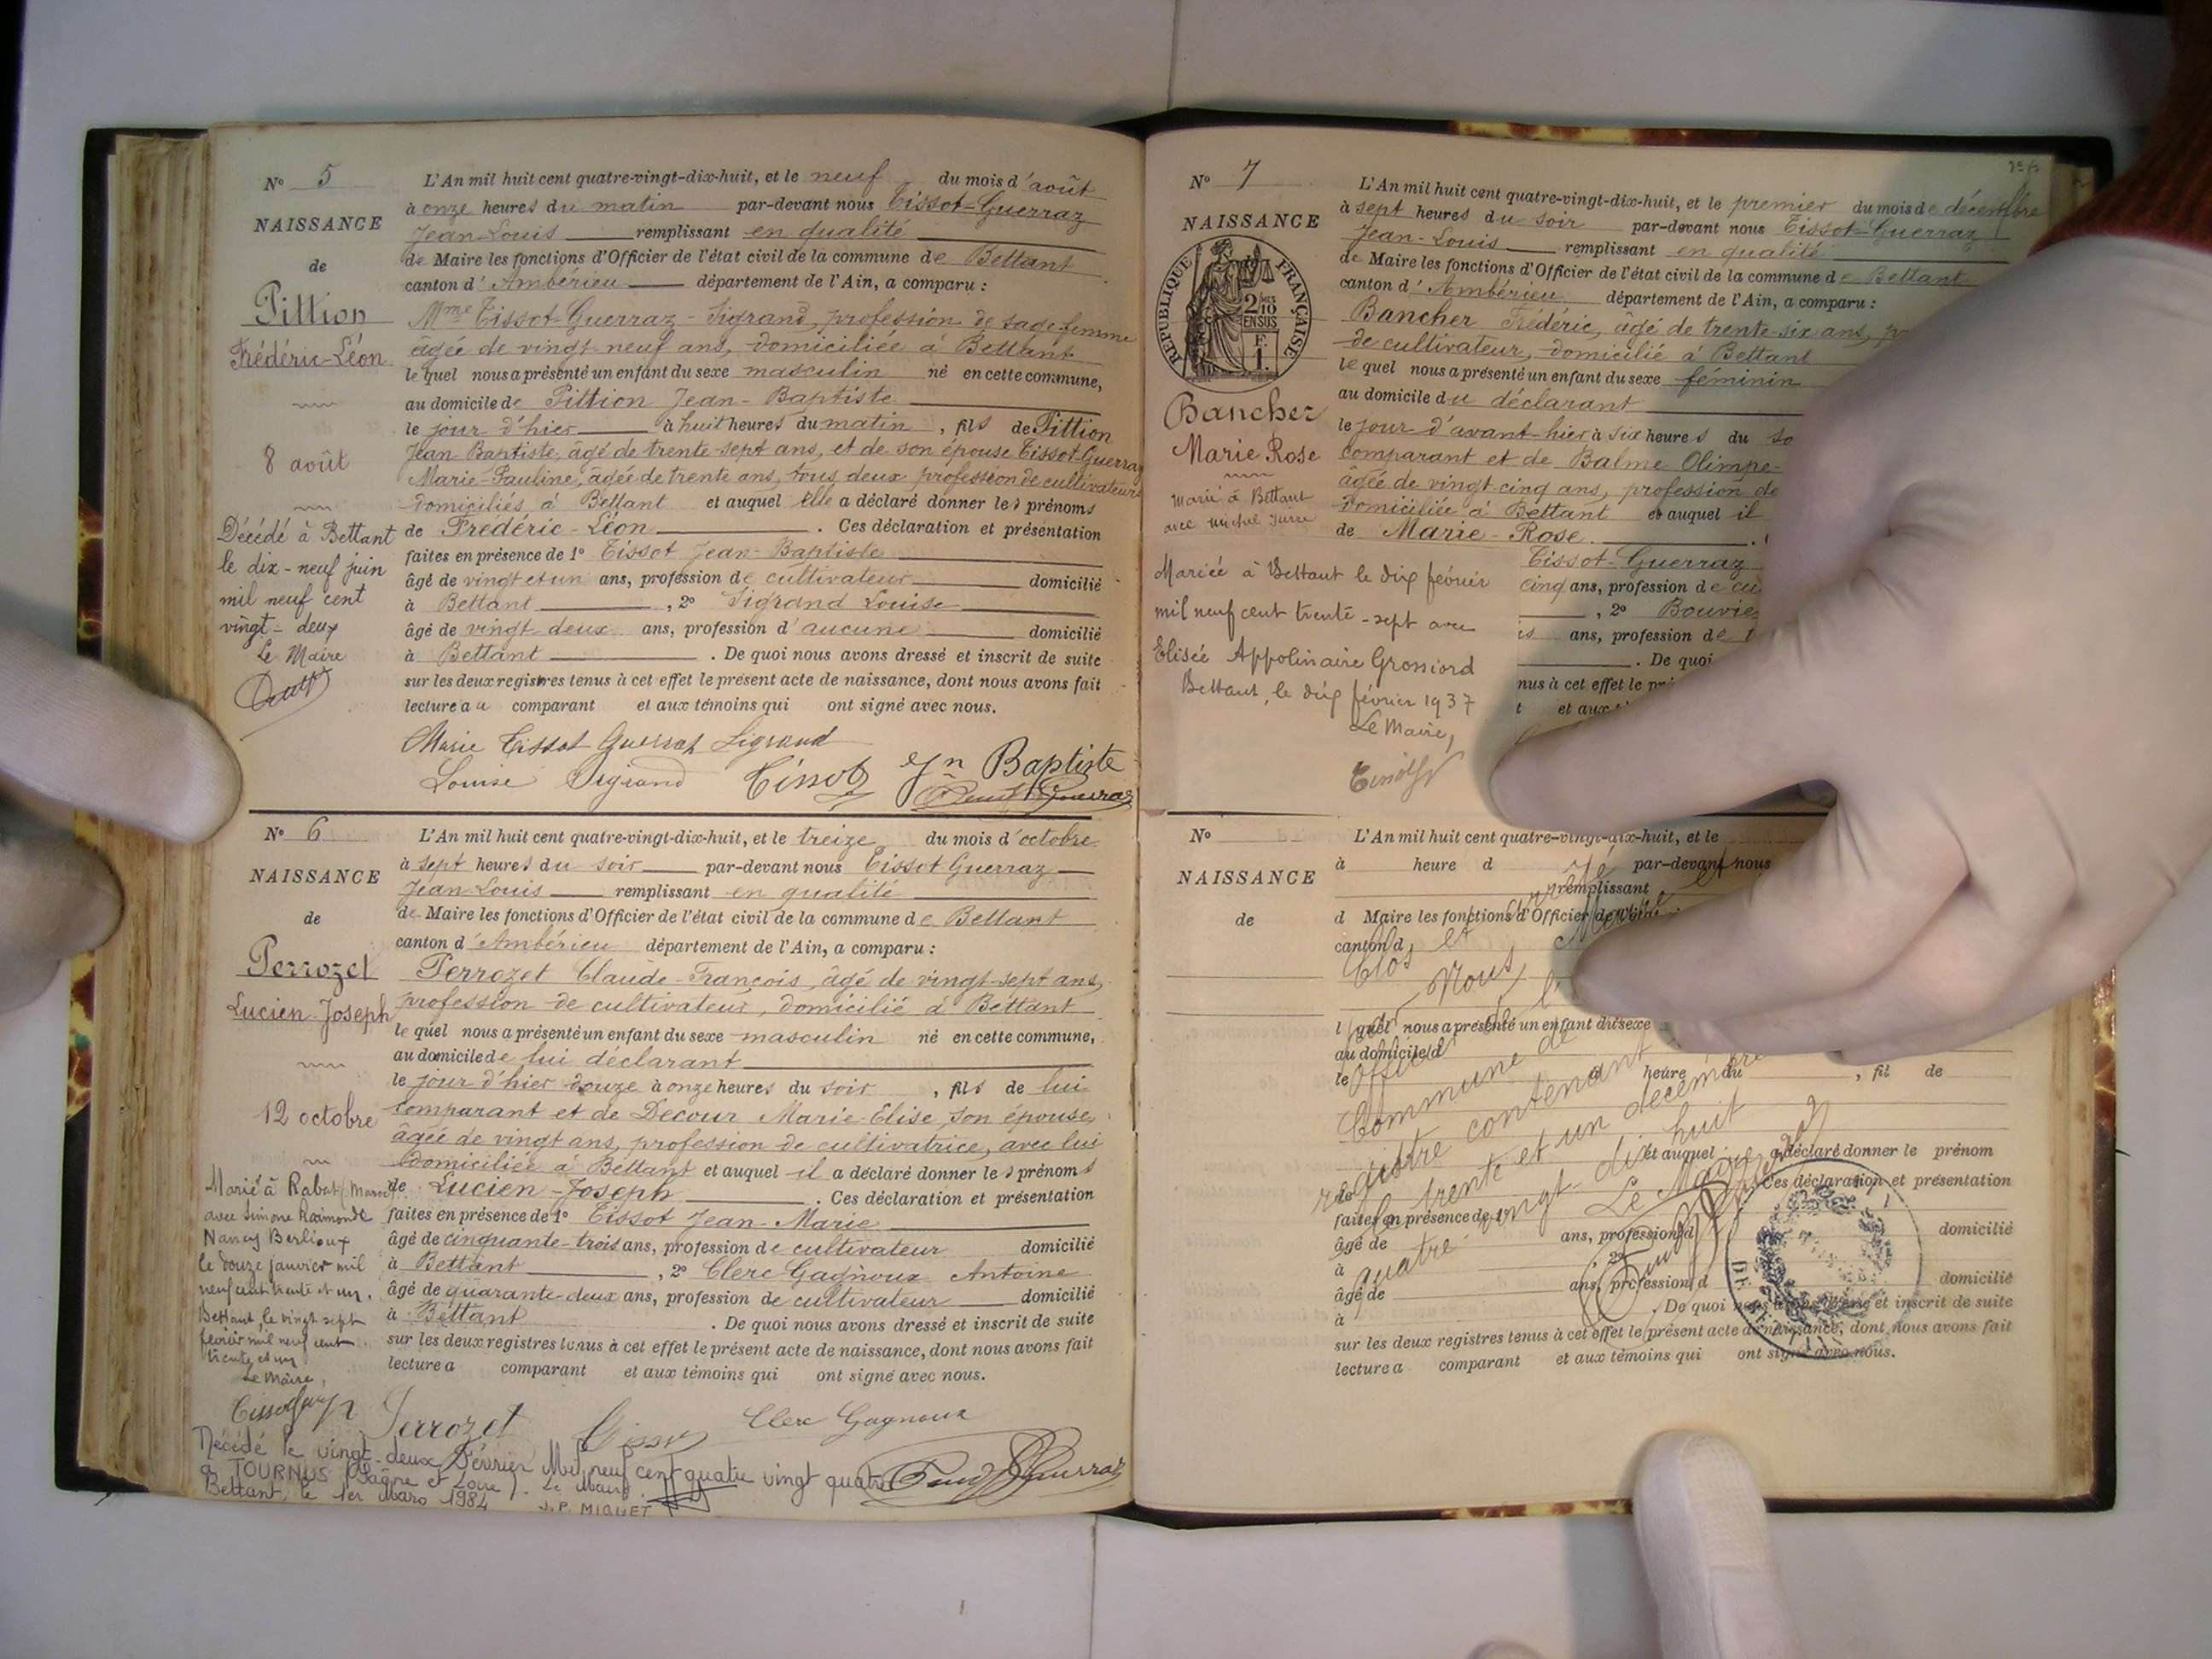 N° 5
NAISSANCE
de
Pittion
Frédéric-Léon
8 août
Décédé à Bettant
le dix-neuf juin
mil neuf cent
vingt-deux
Le Maire
L'An mil huit cent quatre-vingt-dix-huit, et le neuf du mois d'août
à onze heures du matin par-devant nous Tissot-Guerraz
Jean-Louis remplissant en qualité
de Maire les fonctions d'Officier de l'état civil de la commune de Bettant
canton d'Ambérieu département de l'Ain, a comparu :
Mme Tissot-Guerraz-Sigrand, profession de sage-femme
âgée de vingt-neuf ans, domiciliée à Bettant
lequel nous a présenté un enfant du sexe masculin né en cette commune,
au domicile de Pittion Jean-Baptiste
le jour d'hier à huit heures du matin, fils de Pittion
Jean Baptiste, âgé de trente-sept ans, et de son épouse Tissot-Guerraz
Marie-Pauline, âgée de trente ans, tous deux profession de cultivateurs
domiciliés à Bettant et auquel elle a déclaré donner les prénoms
de Frédéric-Léon. Ces déclaration et présentation
faites en présence de 1° Tissot Jean-Baptiste
âgé de vingt et un ans, profession de cultivateur domicilié
à Bettant, 2° Sigrand Louise
âgé de vingt-deux ans, profession d'aucune domicilié
à Bettant. De quoi nous avons dressé et inscrit de suite
sur les deux registres tenus à cet effet le présent acte de naissance, dont nous avons fait
lecture au comparant et aux témoins qui ont signé avec nous.
Marie Tissot Guerraz Sigrand
Louise Sigrand Tissot Jn Baptiste
N° 6
NAISSANCE
de
Perrozet
Lucien-Joseph
12 octobre
Marié à Rabat, Maroc
avec Simone Raimonde
Nancy Berlioux
le douze janvier mil
neuf cent trente et un.
Bettant, le vingt sept
février mil neuf cent
trente et un
Le Maire,
L'An mil huit cent quatre-vingt-dix-huit, et le treize du mois d'octobre
à sept heures du soir par-devant nous Tissot Guerraz
Jean-Louis remplissant en qualité
de Maire les fonctions d'Officier de l'état civil de la commune de Bettant
canton d'Ambérieu département de l'Ain, a comparu :
Perrozet Claude-François, âgé de vingt-sept ans,
profession de cultivateur, domicilié à Bettant
lequel nous a présenté un enfant du sexe masculin né en cette commune,
au domicile de lui déclarant
le jour d'hier douze à onze heures du soir, fils de lui
comparant et de Decour Marie-Elise, son épouse,
âgée de vingt ans, profession de cultivatrice, avec lui
domiciliée à Bettant et auquel il a déclaré donner les prénoms
de Lucien-Joseph. Ces déclaration et présentation
faites en présence de 1° Tissot Jean-Marie
âgé de cinquante-trois ans, profession de cultivateur domicilié
à Bettant, 2° Clerc Gagnoux Antoine
âgé de quarante-deux ans, profession de cultivateur domicilié
à Bettant. De quoi nous avons dressé et inscrit de suite
sur les deux registres tenus à cet effet le présent acte de naissance, dont nous avons fait
lecture a comparant et aux témoins qui ont signé avec nous.
Perrozet Tissot Clerc Gagnoux
Décédé le vingt-deux Février Mil neuf cent quatre vingt quatre
à TOURNUS (Saône et Loire). Le Maire
Bettant, le 1er Mars 1984 J.P. MIQUET
N° 7
NAISSANCE
RÉPUBLIQUE FRANÇAISE
2/10 EN SUS
F. 1.
Bancher
Marie Rose
Marié à Bettant
Mariée à Bettant le dix février
mil neuf cent trente-sept avec
Elisée Appolinaire Grossiord
Bettant, le dix février 1937
Le Maire,
L'An mil huit cent quatre-vingt-dix-huit, et le premier du mois de décembre
à sept heures du soir par-devant nous Tissot-Guerraz
Jean-Louis remplissant en qualité
de Maire les fonctions d'Officier de l'état civil de la commune de Bettant
canton d'Ambérieu département de l'Ain, a comparu :
Bancher Frédéric, âgé de trente-six ans,
de cultivateur, domicilié à Bettant
lequel nous a présenté un enfant du sexe féminin
au domicile du déclarant
le jour d'avant-hier à six heures du so
comparant et de Balme Olimpe-
âgée de vingt-cinq ans, profession de
domiciliée à Bettant et auquel il
de Marie-Rose.
Tissot-Guerraz
cinq ans, profession de cu
, 2° Bouvie
ans, profession de t
. De quoi
nus à cet effet le pré
t et aux
N°
NAISSANCE
de
L'An mil huit cent quatre-vingt-dix-huit, et le
à heure d par-devant nous
remplissant
d Maire les fonctions d'Officier de l'état
canton d
l quel nous a présenté un enfant du sexe
au domicile d
le à heure du , fil de
et auquel a déclaré donner le prénom
de Ces déclaration et présentation
faites en présence de 1°
âgé de ans, profession d domicilié
à , 2°
âgé de ans, profession d domicilié
à . De quoi nous avons dressé et inscrit de suite
sur les deux registres tenus à cet effet le présent acte de naissance, dont nous avons fait
lecture a comparant et aux témoins qui ont signé avec nous.
Clos et
Nous
officier de
Commune de
registre contenant
le trente et un décembre
quatre-vingt-dix huit
Le Maire